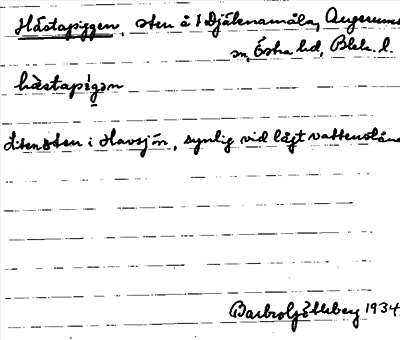 Hästapiggen, sten å 1 Djäkenamåla, Augerums
sn, Östra hd, Blek. l.
hästapigən
Liten sten i Havsjön, synlig vid lågt vattenstånd
Barbro Götheberg 1934